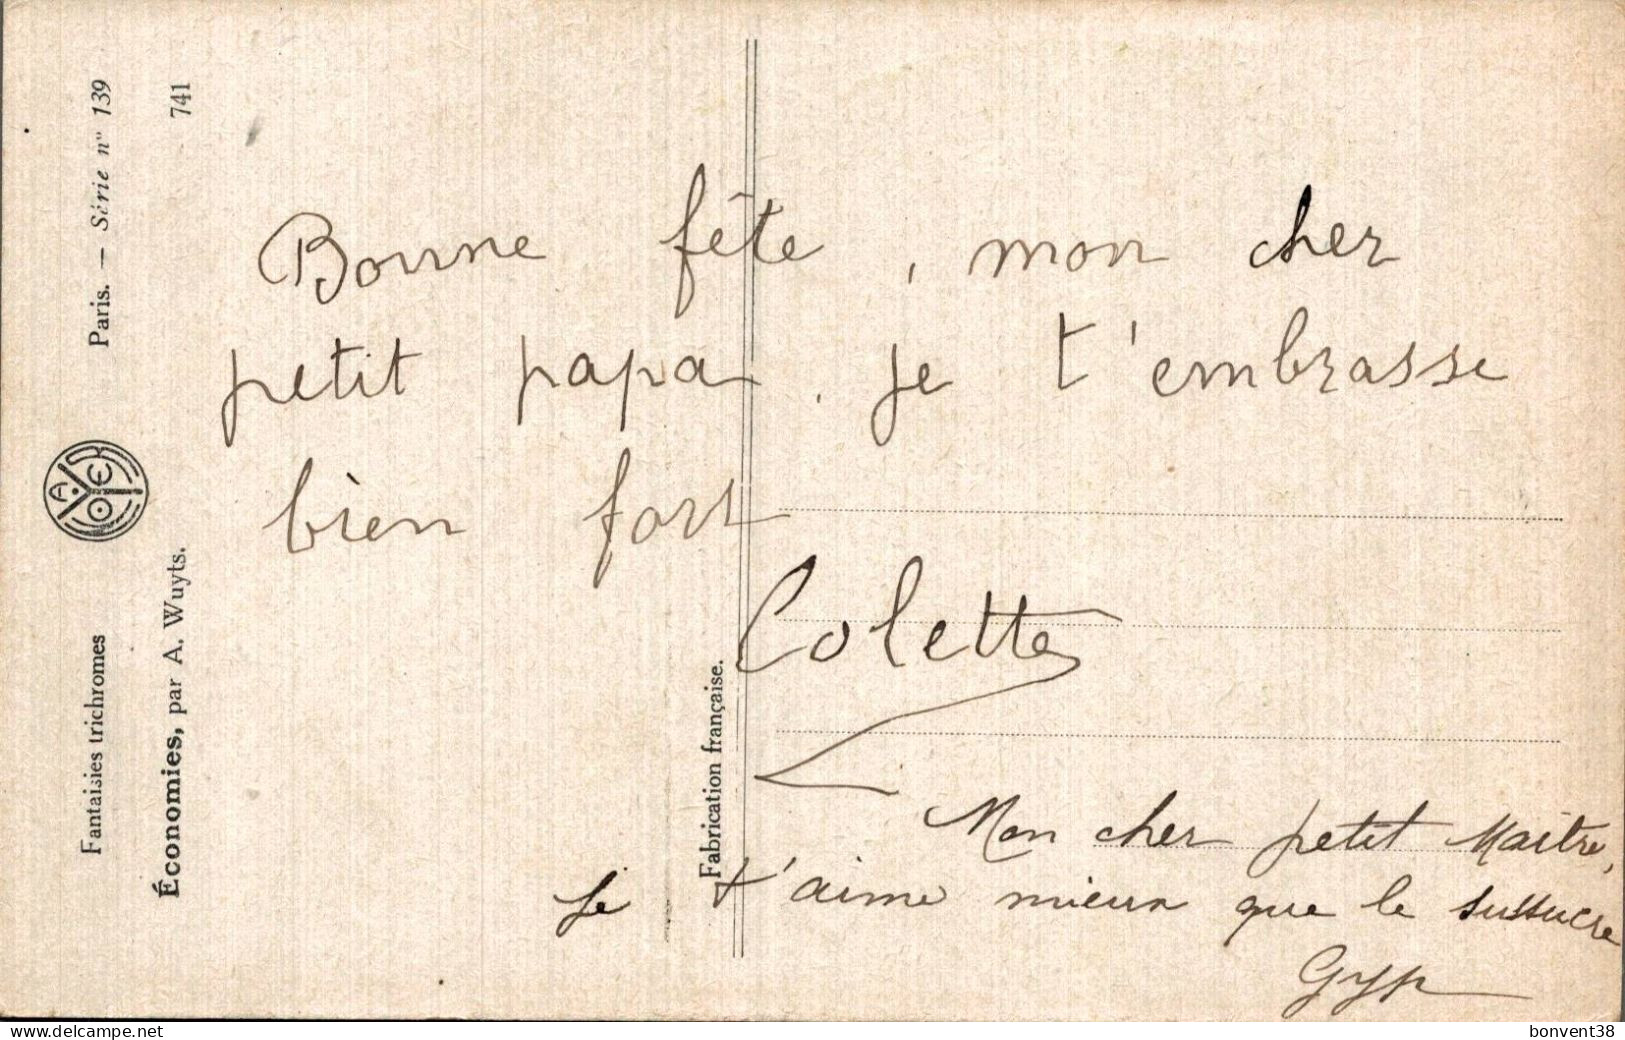 Fantaisies trichromes
Paris. — Série nº 139
Économies, par A. Wuyts.
741
Fabrication française.
Bonne fête, mon cher
petit papa. je t'embrasse
bien fort
Colette
Mon cher petit Maître,
Je t'aime mieux que le sussucre
Gyp
bonvent38